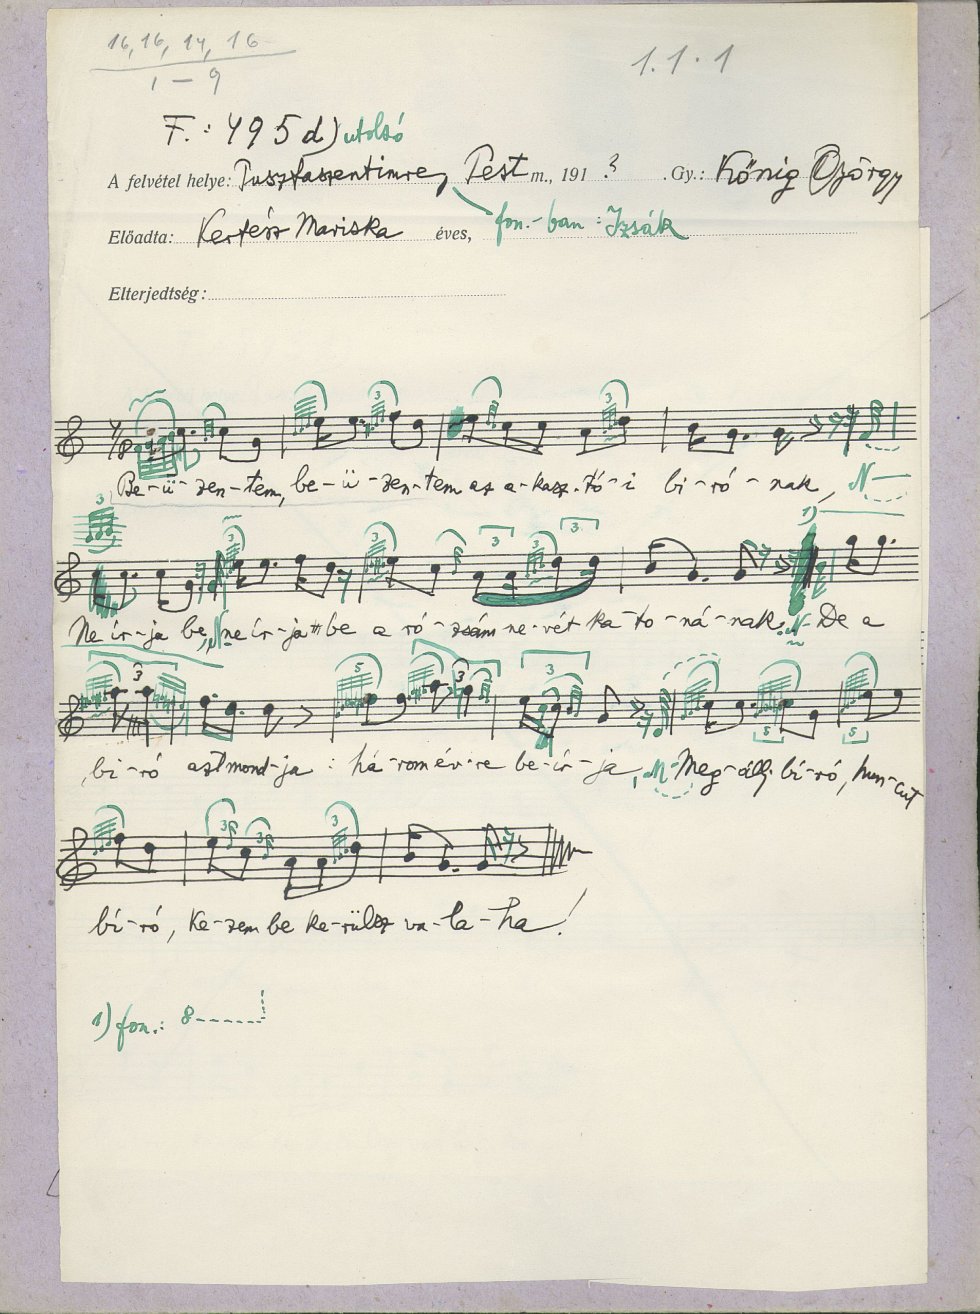 16, 16, 14, 16
1 – 9
1.1.1
F.: 495 d) utolsó
A felvétel helye: Pusztaszentimre, Pest m., 191 ? . Gy.: Kőnig György
fon.-ban : Izsák
Előadta: Kertész Mariska éves,
Elterjedtség:
3 3
7/8
Be-ü-zen-tem, be-ü-zen-tem az a-kasz-tó-i bi-ró-nak, N
3 3 3 3 3 3 1)
Ne ír-ja be, N ne ír-ja be a ró-zsám ne-vét ka-to-ná-nak. N De a
3 5 3 3 5 5
bi-ró aztmond-ja : há-rom év-re be-ír-ja, N Meg-állj bí-ró, hun-cut
3 3 3
bí-ró, Ke-zem be ke-rülsz va-la-ha!
1) fon.: 8